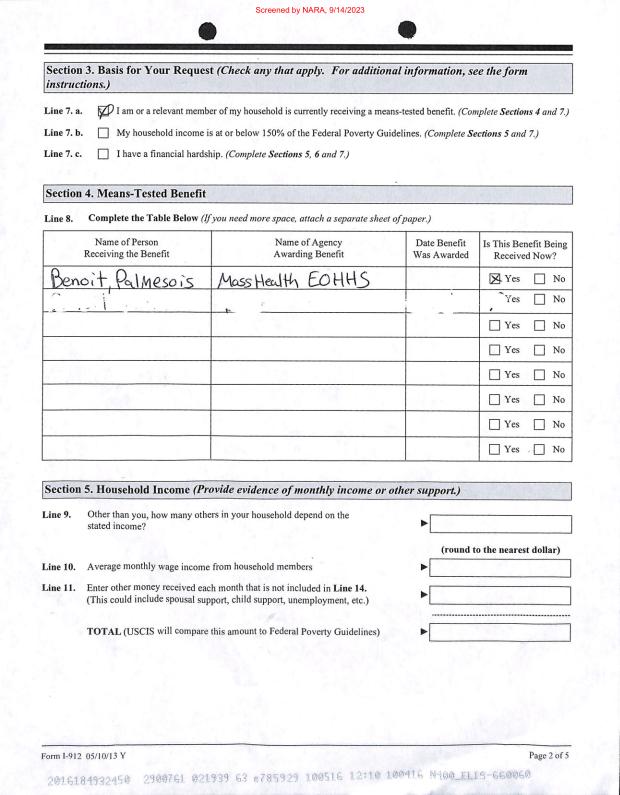 Screened by NARA, 9/14/2023
Section 3. Basis for Your Request (Check any that apply. For additional information, see the form
instructions.)
Line 7. a. I am or a relevant member of my household is currently receiving a means-tested benefit. (Complete Sections 4 and 7.)
Line 7. b. My household income is at or below 150% of the Federal Poverty Guidelines. (Complete Sections 5 and 7.)
Line 7. c. I have a financial hardship. (Complete Sections 5, 6 and 7.)
Section 4. Means-Tested Benefit
Line 8. Complete the Table Below (If you need more space, attach a separate sheet of paper.)
Name of Person
Receiving the Benefit
Name of Agency
Awarding Benefit
Date Benefit
Was Awarded
Is This Benefit Being
Received Now?
Benoit, Palmesois MassHealth EOHHS Yes No
Yes No
Yes No
Yes No
Yes No
Yes No
Yes No
Yes No
Section 5. Household Income (Provide evidence of monthly income or other support.)
Line 9. Other than you, how many others in your household depend on the
stated income?
(round to the nearest dollar)
Line 10. Average monthly wage income from household members
Line 11. Enter other money received each month that is not included in Line 14.
(This could include spousal support, child support, unemployment, etc.)
TOTAL (USCIS will compare this amount to Federal Poverty Guidelines)
Form I-912 05/10/13 Y Page 2 of 5
2016184932450 2900761 021939 63 e785929 100516 12:10 100416 N400_ELIS-660060